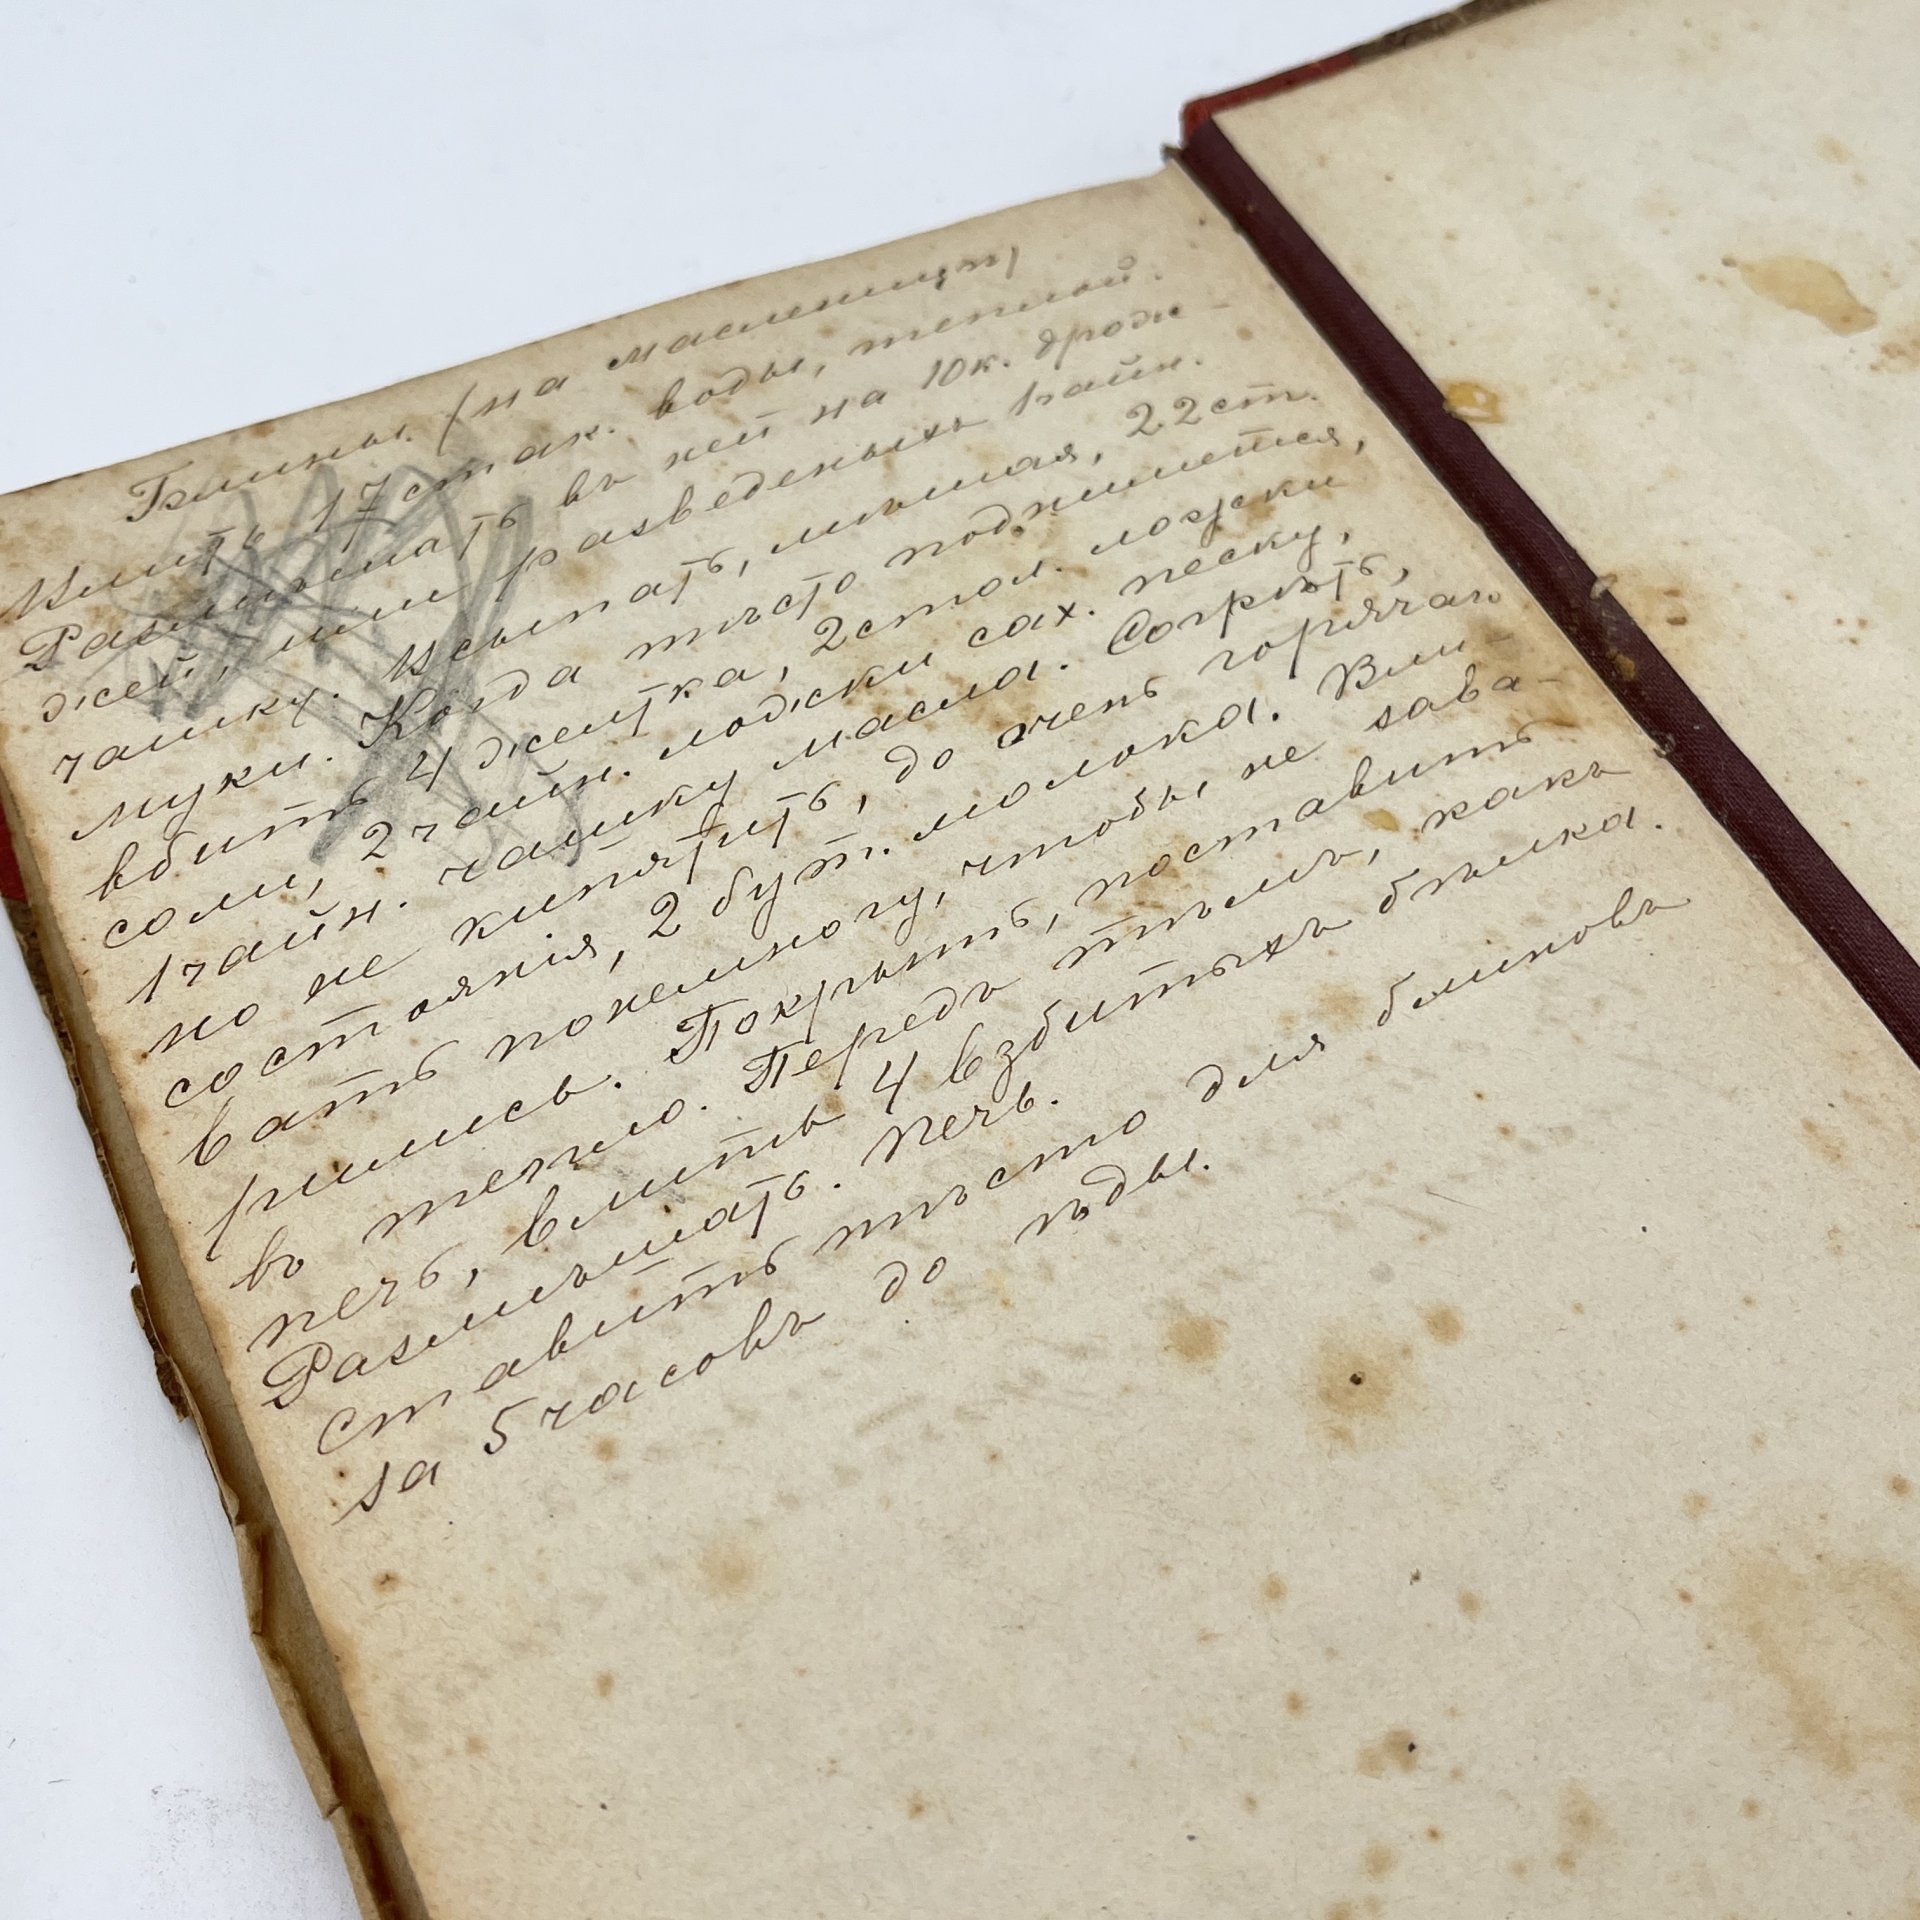 Блины. (на масленицу)
Влить 17 стак. воды, теплой.
Размѣшать въ ней на 10 к. дрож-
жей, или разведеныхъ 1 чайн.
чашку. Всыпать, мѣшая, 22 ст.
муки. Когда тѣсто поднимется,
вбить 4 желтка, 2 стол. ложки
соли, 2 чайн. ложки сах. песку,
1 чайн. чашку масла. Согрѣть,
но не кипятить, до очень горячаго
состоянія, 2 бут. молока. Вли-
вать понемногу, чтобы не зава-
рилось. Покрыть, поставить
въ тепло. Передъ тѣмъ, какъ
печь, влить 4 взбитыхъ бѣлка.
Размѣшать. Печь.
Ставить тѣсто для блиновъ
за 5 часовъ до ѣды.